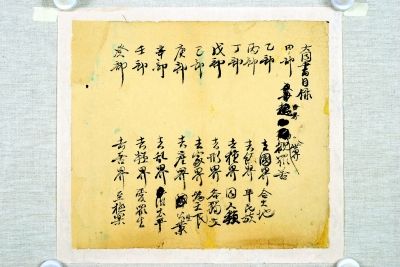 大同書目錄
甲部 世界觀眾苦
乙部 去國界合大地
丙部 去級界平民族
丁部 去種界同人類
戊部 去形界各獨立
己部 去家界為天民
庚部 去產界公生業
辛部 去亂界治太平
壬部 去類界愛眾生
癸部 去苦界至極樂